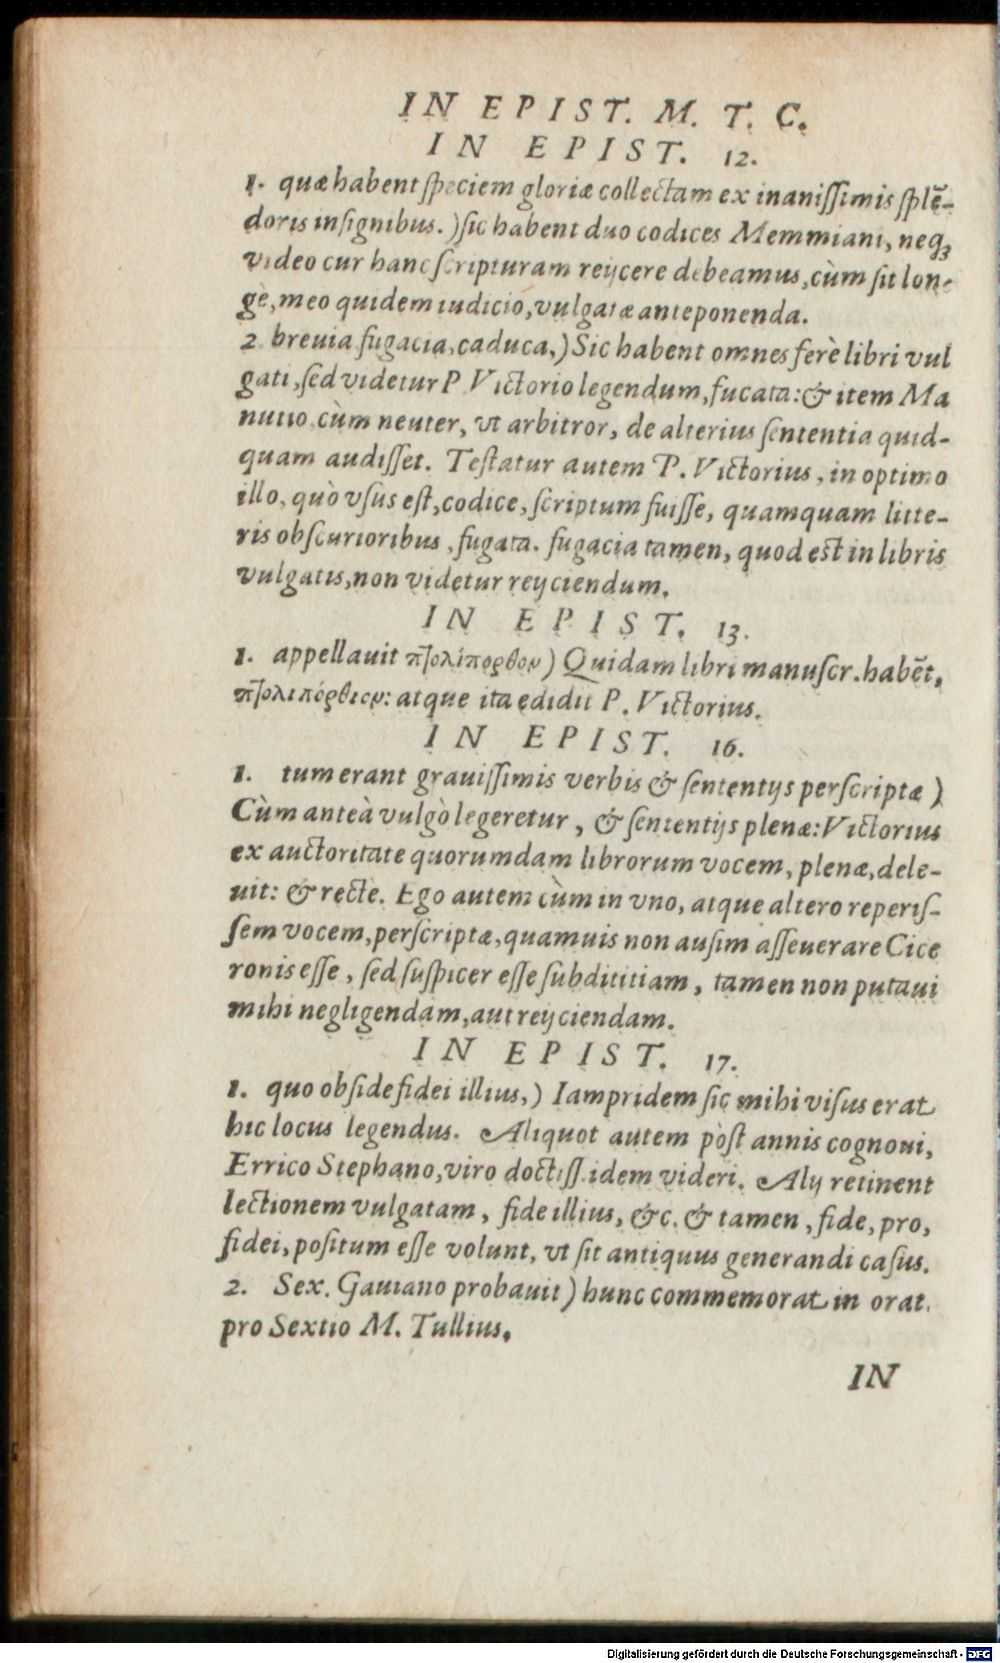 IN EPIST. M. T. C.
IN EPIST. 12.
1. quæ habent speciem gloriæ collectam ex inanissimis splẽ-
doris insignibus.) sic habent duo codices Memmiani, neqꝫ
video cur hanc scripturam reijcere debeamus, cùm sit lon-
gè, meo quidem iudicio, vulgatæ anteponenda.
2 breuia fugacia, caduca,) Sic habent omnes ferè libri vul
gati, sed videtur P Victorio legendum, fucata: & item Ma
nutio, cùm neuter, vt arbitror, de alterius sententia quid-
quam audisset. Testatur autem P. Victorius, in optimo
illo, quò vsus est, codice, scriptum fuisse, quamquam litte-
ris obscurioribus, fugata. fugacia tamen, quod est in libris
vulgatis, non videtur reijciendum.
IN EPIST. 13.
1. appellauit πτολίπορθον) Quidam libri manuscr. habẽt,
πτολιπόρθιον: atque ita edidit P. Victorius.
IN EPIST. 16.
1. tum erant grauissimis verbis & sententijs perscriptæ)
Cùm anteà vulgò legeretur, & sententijs plenæ: Victorius
ex auctoritate quorumdam librorum vocem, plenæ, dele-
uit: & rectè. Ego autem cùm in vno, atque altero reperis-
sem vocem, perscriptæ, quamuis non ausim asseuerare Cice
ronis esse, sed suspicer esse subdititiam, tamen non putaui
mihi negligendam, aut reijciendam.
IN EPIST. 17.
1. quo obside fidei illius,) Iampridem sic mihi visus erat
hic locus legendus. Aliquot autem pòst annis cognoui,
Errico Stephano, viro doctiss. idem videri. Alij retinent
lectionem vulgatam, fide illius, &c. & tamen, fide, pro,
fidei, positum esse volunt, vt sit antiquus generandi casus.
2. Sex. Gauiano probauit) hunc commemorat in orat.
pro Sextio M. Tullius.
IN
Digitalisierung gefördert durch die Deutsche Forschungsgemeinschaft - DFG